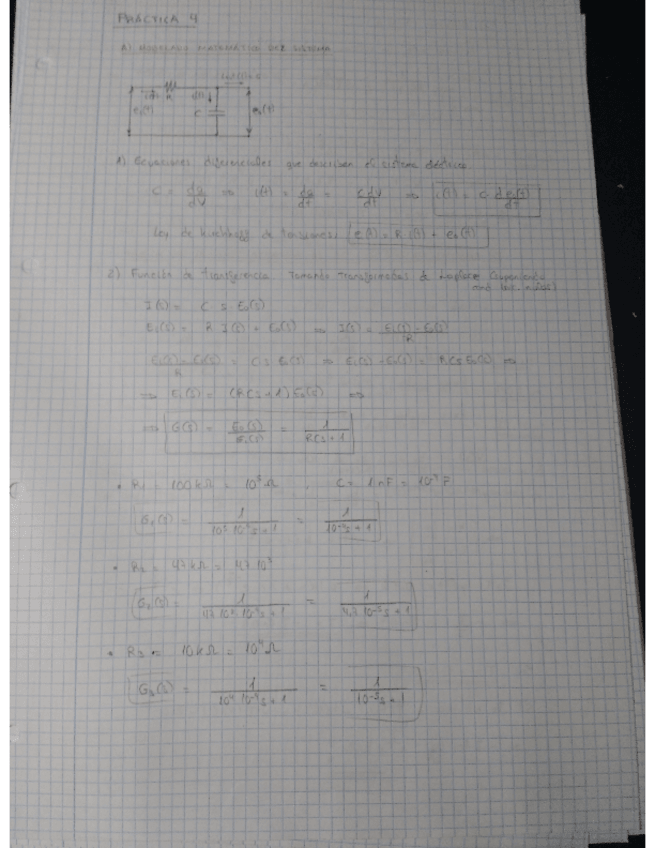 PRÁCTICA 4
A) MODELADO MATEMÁTICO DEL SISTEMA
i(t) R i(t)
e₁(t) C e₀(t)
1) Ecuaciones diferenciales que describen el sistema eléctrico
C = dq/dV ⇒ i(t) = dq/dt = C dV/dt ⇒ i(t) = C de₀(t)/dt
Ley de Kirchhoff de tensiones: e(t) = R i(t) + e₀(t)
2) Función de transferencia. Tomando transformadas de Laplace (suponiendo
cond. nulas)
I(s) = C s E₀(s)
E₁(s) = R I(s) + E₀(s) ⇒ I(s) = E₁(s) - E₀(s)/R
E₁(s) - E₀(s)/R = C s E₀(s) ⇒ E₁(s) - E₀(s) = RCs E₀(s) ⇒
⇒ E₁(s) = (RCs + 1) E₀(s) ⇒
⇒ G(s) = E₀(s)/E₁(s) = 1/RCs + 1
• R₁ = 100 kΩ = 10⁵ Ω , C = 1 nF = 10⁻⁹ F
G₁(s) = 1/10⁵ 10⁻⁹ s + 1 = 1/10⁻⁴ s + 1
• R₂ = 47 kΩ = 47 10³
G₂(s) = 1/47 10³ 10⁻⁹ s + 1 = 1/4,7 10⁻⁵ s + 1
• R₃ = 10 kΩ = 10⁴ Ω
G₃(s) = 1/10⁴ 10⁻⁹ s + 1 = 1/10⁻⁵ s + 1